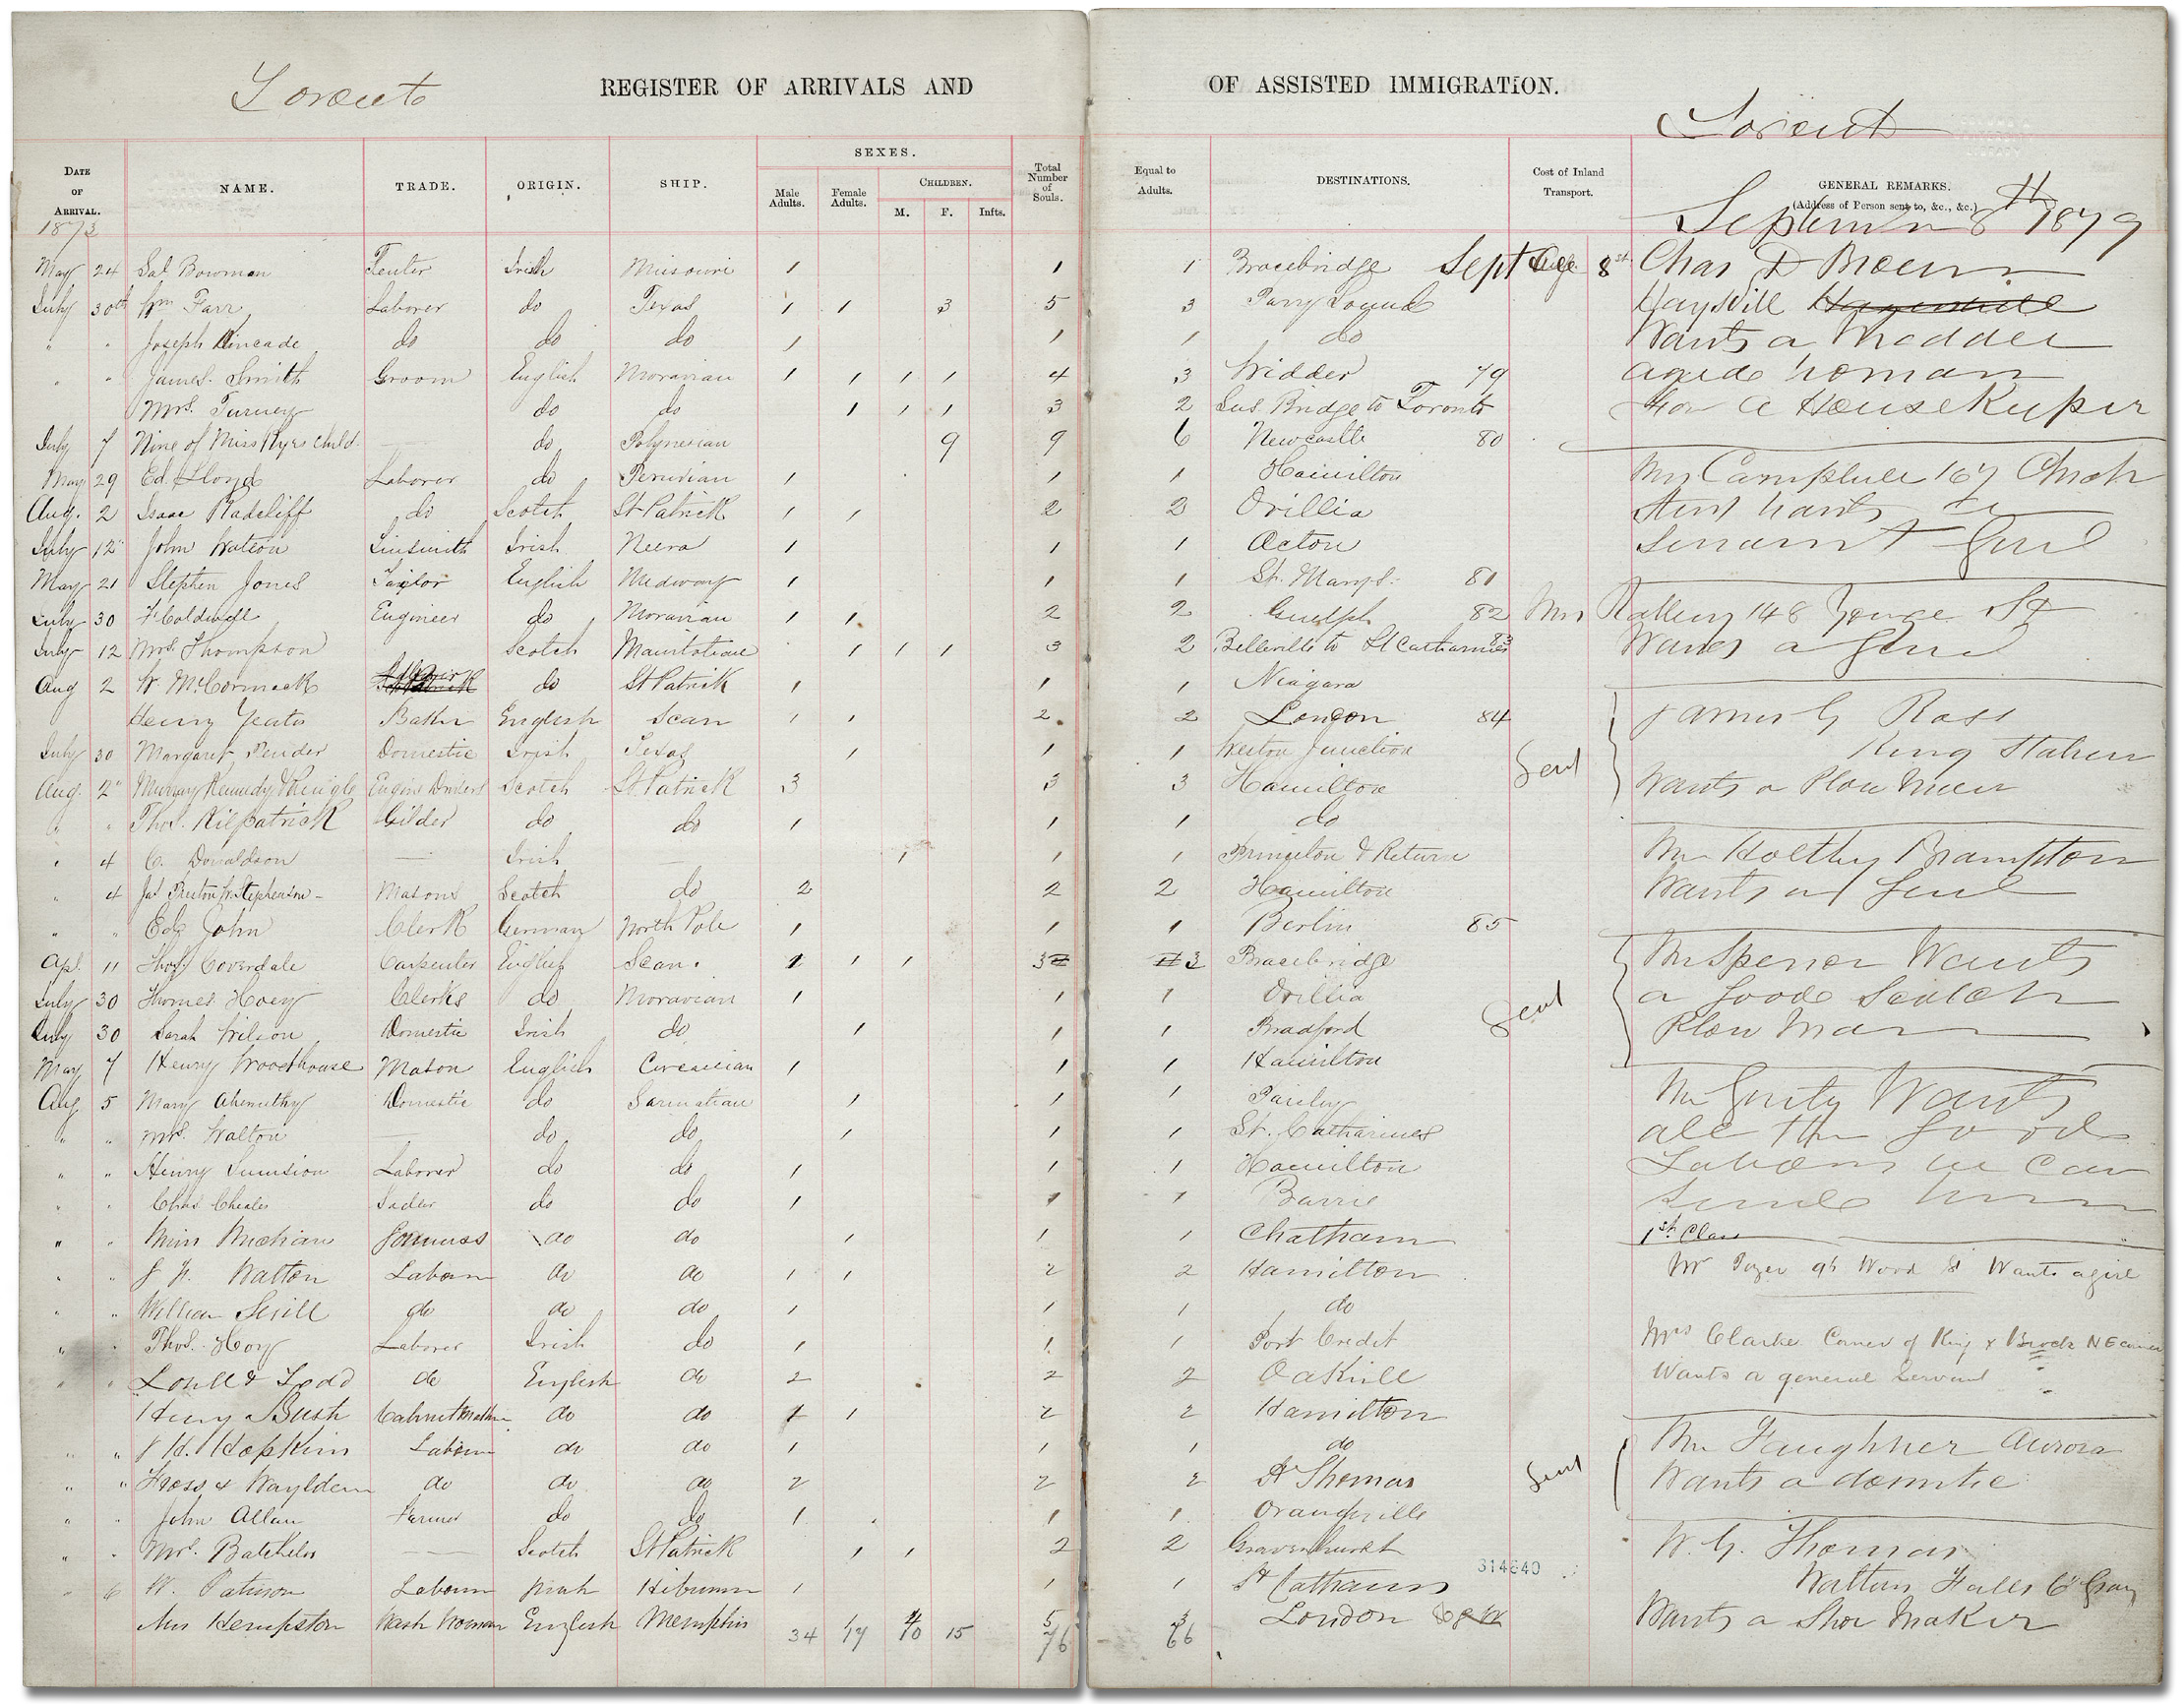 Toronto
REGISTER OF ARRIVALS AND OF ASSISTED IMMIGRATION.
Toronto
DATE OF ARRIVAL. NAME. TRADE. ORIGIN. SHIP. SEXES. Male Adults. Female Adults. CHILDREN. M. F. Infts. Total Number of Souls. Equal to Adults. DESTINATIONS. Cost of Inland Transport. GENERAL REMARKS. (Address of Person sent to, &c., &c.)
1873 September 8th 1879
May 24 Sal Bowman Irish Missouri 1 1 1 Bracebridge Sept 8 Chas D Brown
July 30th Wm Farr Laborer do Texas 1 1 3 5 3 Parry Sound Haysvill
" " Joseph Kincade do do do 1 1 1 do Wants a Medder
" " James Smith Groom English Moravian 1 1 1 1 4 3 Widder 79 aged Woman
Mrs. Turney do do 1 1 1 3 2 Sus. Bridge to Toronto for a HouseKeeper
July 7 Nine of Miss Rye's Child. do Polynesian 9 9 6 Newcastle 80
May 29 Ed. Lloyd Laborer do Peruvian 1 1 1 Hamilton Mr Campbell 167 Church
Aug. 2 Isaac Radcliff do Scotch St Patrick 1 1 2 2 Orillia Street Wants a
July 12" John Watson Tinsmith Irish 1 1 1 Acton Servant Girl
May 21 Stephen Jones Taylor English Medway 1 1 1 St. Marys. 81
July 30 F Coldwell Engineer do Moravian 1 1 2 2 Guelph 82 Mrs 148 Yonge St
July 12 Mrs Thompson Scotch Manitobean 1 1 1 3 2 Belleville to St Catharines 83 Wants a Girl
Aug 2 W. McCormack do St Patrick 1 1 1 Niagara
Henry Yeates Baker English Scan 1 1 2 2 London 84 James G Ross
July 30 Margaret Pender Domestic Irish Texas 1 1 1 Weston Junction Sent King Station
Aug. 2" Murray Kennedy & Pringle Engine Drivers Scotch St Patrick 3 3 3 Hamilton Wants a Plow Man
" " Thos. Kilpatrick Gilder do do 1 1 1 do
" 4 C. Donaldson Irish 1 1 1 Princeton & Return Mr Holtby Brampton
" 4 Jas Preston W. Stephenson Masons Scotch do 2 2 2 Hamilton Wants a Girl
" " Edg John Clerk German North Pole 1 1 1 Berlin 85
Apl. 11 Thos. Coverdale Carpenter English Scan. 1 1 1 3 3 Bracebridge Mr Spencer Wants
July 30 Thomas Hoey Clerks do Moravian 1 1 1 Orillia Sent a Good Scotch
July 30 Sarah Wilson Domestic Irish do 1 1 1 Bradford Plow Man
May 7 Henry Woodhouse Mason English Circassian 1 1 1 Hamilton
Aug 5 Mary Domestic do Sarmatian 1 1 1 Paisley Mr Wants
" " Mrs. Walton do do 1 1 1 St. Catharines all the Good
" " Henry Laborer do do 1 1 1 Hamilton Laborers we Can
" " Chas Cheales Sadler do do 1 1 1 Barrie Send him
" " Miss Governess do do 1 1 1 Chatham 1st Class
" " J W. Walton Laborer do do 1 1 2 2 Hamilton Mr 95 Wood St Wants a girl
" " William do do do 1 1 1 do
" " Thos. Hoey Laborer Irish do 1 1 1 Port Credit Mrs Clarke Corner of King & Brock N E corner
" " & Todd do English do 2 2 2 Oakville Wants a general Servant
" " Henry Bush Cabinet Maker do do 1 1 2 2 Hamilton
" " J H. Hopkins Laborer do do 1 1 1 do Mr Faughner Aurora
" " do do do 2 2 2 St Thomas Sent Wants a domestic
" " John Allan Farmer do do 1 1 1 Orangeville
" " Mrs. Batchelor Scotch St Patrick 1 1 2 2 Gravenhurst W. G. Thomas
314640
" 6 W. Laborer Irish Hibernian 1 1 1 St Catharines Walters Falls Co Grey
Mrs Hempston Wash Woman English Memphis 4 5 3 London Wants a Shoe Maker
34 17 10 15 76 66